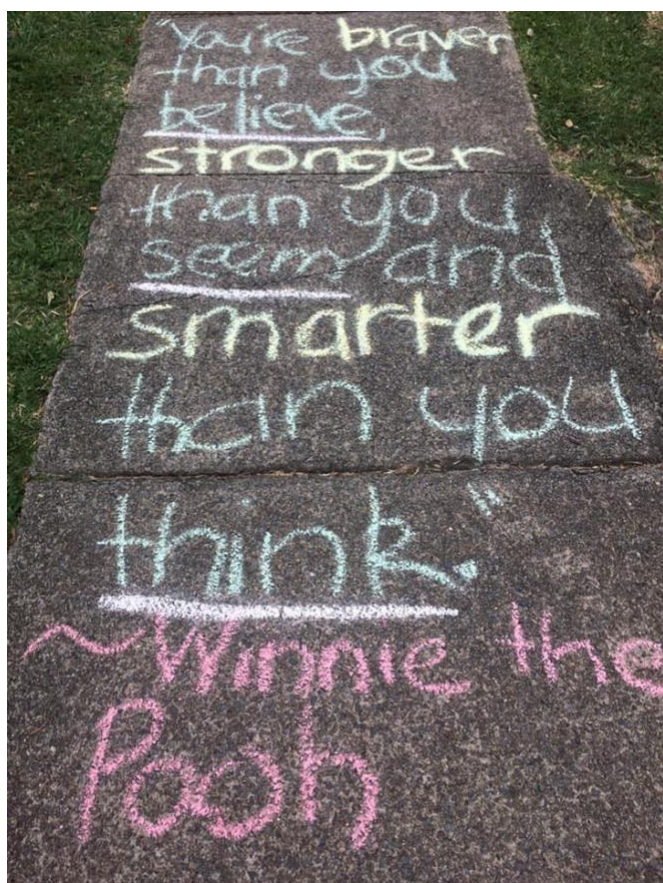 "You're braver
than you
believe,
stronger
than you
seem and
smarter
than you
think."
~Winnie the
Pooh